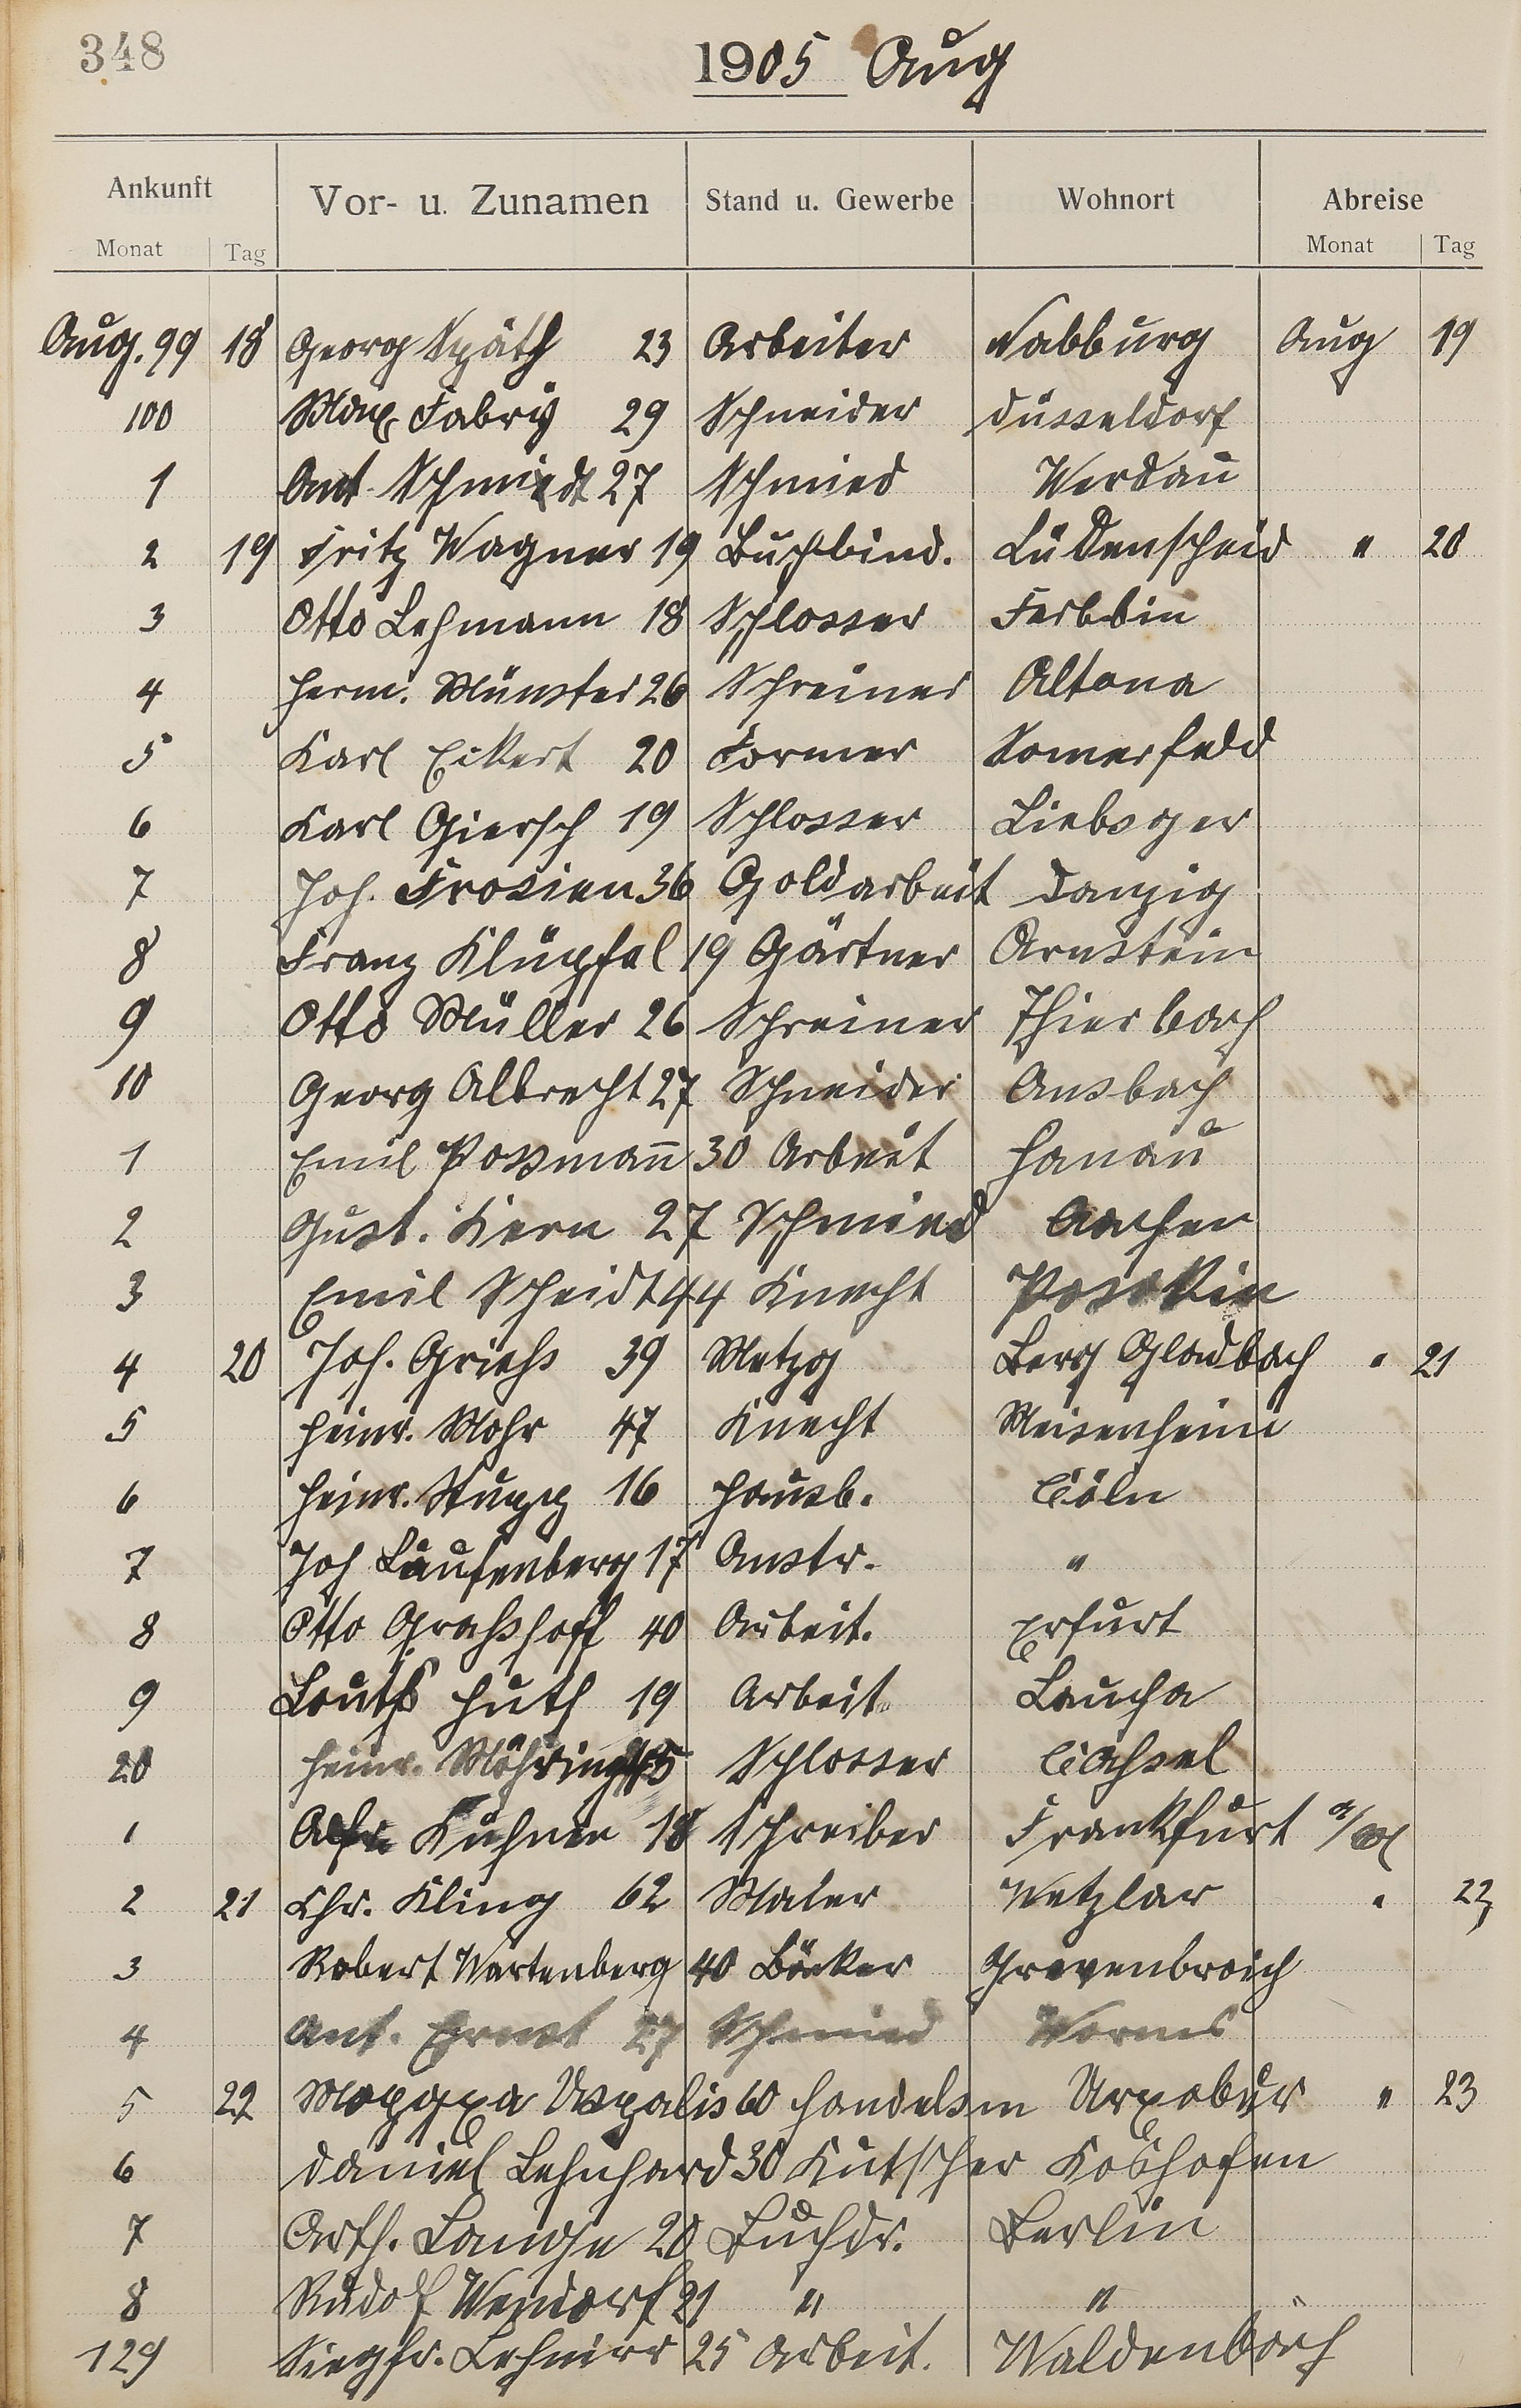 348
1905 Aug
Ankunft Vor- u. Zunamen Stand u. Gewerbe Wohnort Abreise
Monat Tag Monat Tag
Aug. 99 18 Georg Späth 23 Arbeiter Nabburg Aug 19
100 Max Fabrig 29 Schneider Düsseldorf
1 Ant. Schmiedt 27 Schmied Werdau
2 19 Fritz Wagner 19 Buchbind. Lüdenscheid " 20
3 Otto Lehmann 18 Schlosser Ferbbin
4 Herm. Münster 26 Schreiner Altona
5 Karl Eikert 20 Former Somerfeld
6 Karl Giersch 19 Schlosser Liebsger
7 Joh. Frosien 36 Goldarbeit Danzig
8 Franz Klüpfel 19 Gärtner Arnstein
9 Otto Müller 26 Schreiner Thierbach
10 Georg Albrecht 27 Schneider Ansbach
1 Emil Possmann̄ 30 Arbeit Hanau
2 Gust. Kern 27 Schmied Aachen
3 Emil Scheidt 44 Knecht
4 20 Joh. Griehs 39 Metzg Berg Gladbach " 21
5 Heinr. Mohr 47 Knecht Meisenheim
6 Heinr. Stupp 16 Hausb. Cöln
7 Joh Laufenberg 17 Anstr. "
8 Otto Grahshoff 40 Arbeit. Erfurt
9 Huth 19 Arbeit. Laucha
20 Heinr. Möhring 45 Schlosser Cahsel
1 Kuhnen 18 Schreiber Frankfurt a/M
2 21 Chr. Kling 62 Maler Wetzlar " 22
3 Robert Wartenberg 40 Bäcker Grevenbroich
4 Ant. Ernst 27 Schmied Worms
5 22 Uspalis 60 Handelsm " 23
6 Daniel Lehnhard 30 Kutscher Koshofen
7 Arth. Lange 20 Buchdr. Berlin
8 Rudolf Wendorf 21 " "
129 Siegfr. 25 Arbeit. Waldenbörch